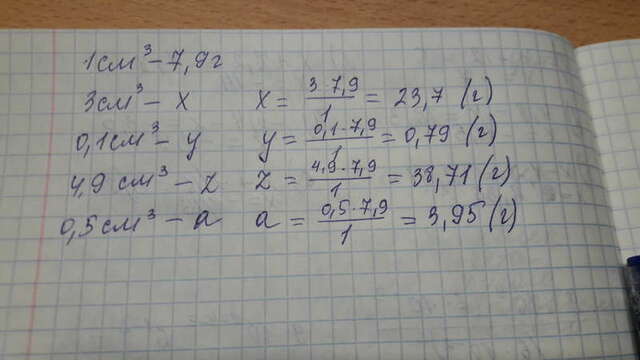 1см³ – 7,9г
3см³ – x x = 3·7,9/1 = 23,7 (г)
0,1см³ – y y = 0,1·7,9/1 = 0,79 (г)
4,9 см³ – z z = 4,9·7,9/1 = 38,71 (г)
0,5см³ – a a = 0,5·7,9/1 = 3,95 (г)